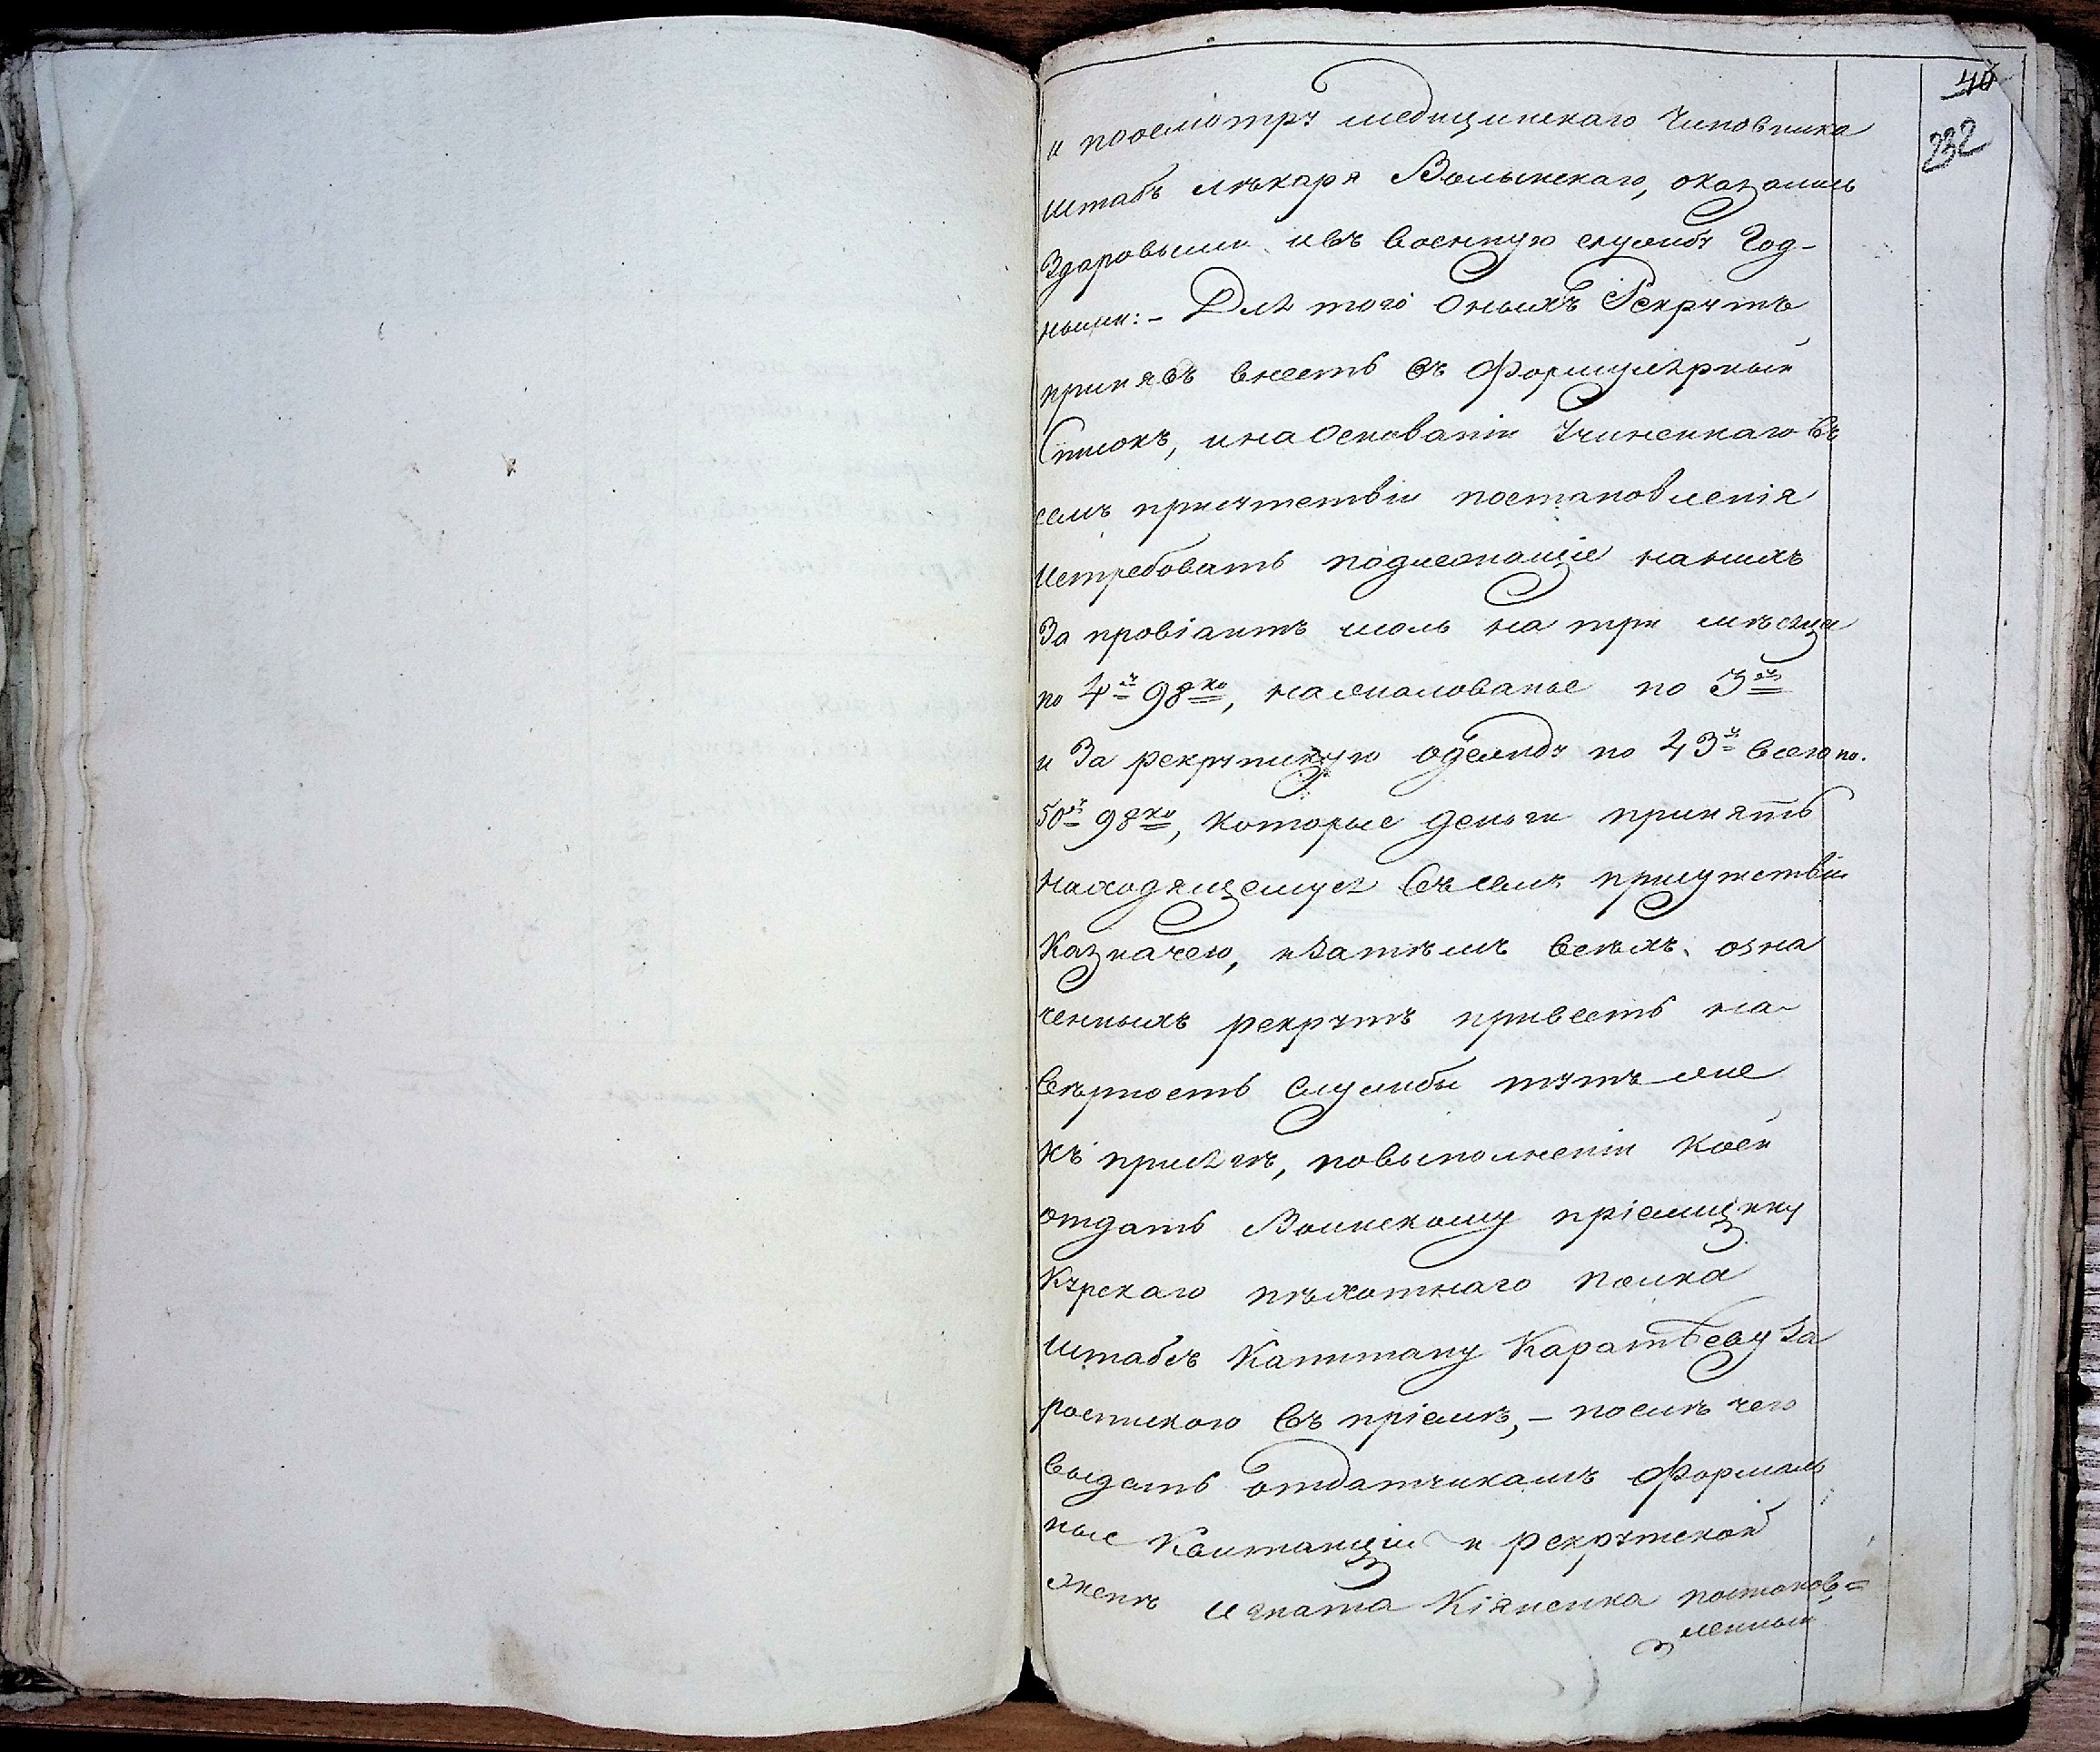 40
232
и поосмотру медицинскаго Чиновника
штабъ лѣкаря Волынскаго, оказались
Здоровыми ивъ военную службу Год-
ными:- Для того Оныхъ Рекрутъ
принявъ внесть въ Формулярный
Списокъ, ина Основаніи Учиненнаго въ
семъ присутствіи постановленія
Истребовать подлежащіе нанихъ
За провіантъ имоль на три мѣсяца
по 4 ру 98 ко, нажалованье по 3 ру
и За рекрутскую одежду по 43 ру всего по
50 ру 98 ко, которые деньги принять
находящемуся Въсемъ присутствіи
Казначею, иЗатѣмъ всѣхъ озна
ченныхъ рекрутъ привесть на
вѣрность Службы тутъ же
къ присягѣ, повыполненіи коей
отдать Воинскому пріемщику
Курскаго пѣхотнаго полка
штабсъ Капитану Каратѣеву За
роспискою въ пріемѣ,- послѣ чего
выдать отдатчикамъ Формаль
ные Квитанціи и рекрутской
женѣ Игната Кіяненка постанов=
ленный